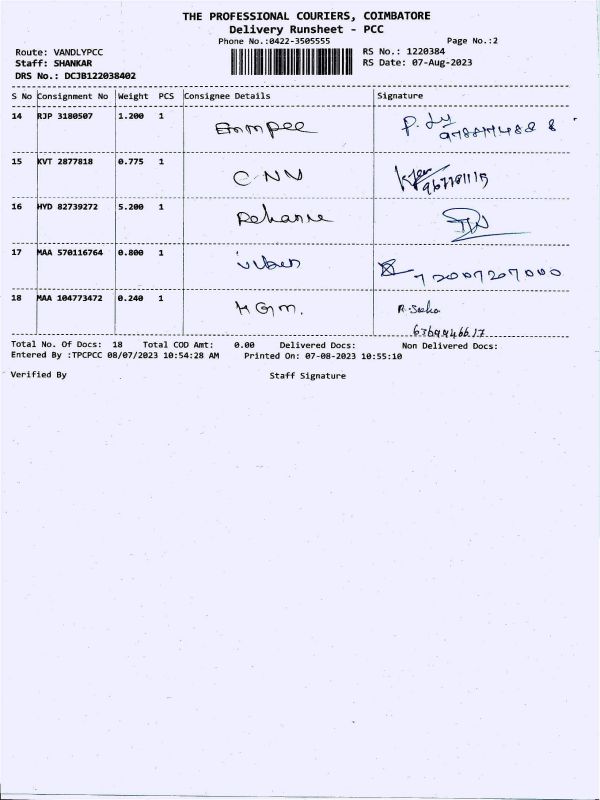 THE PROFESSIONAL COURIERS, COIMBATORE
Delivery Runsheet - PCC
Phone No.:0422-3505555 Page No.:2
Route: VANDLYPCC RS No.: 1220384
Staff: SHANKAR RS Date: 07-Aug-2023
DRS No.: DCJB122038402
S No Consignment No Weight PCS Consignee Details Signature
14 RJP 3180507 1.200 1
15 KVT 2877818 0.775 1 CNN
16 HYD 82739272 5.200 1
17 MAA 570116764 0.800 1 72007207000
18 MAA 104773472 0.240 1 HGM.
Total No. Of Docs: 18 Total COD Amt: 0.00 Delivered Docs: Non Delivered Docs:
Entered By :TPCPCC 08/07/2023 10:54:28 AM Printed On: 07-08-2023 10:55:10
Verified By Staff Signature